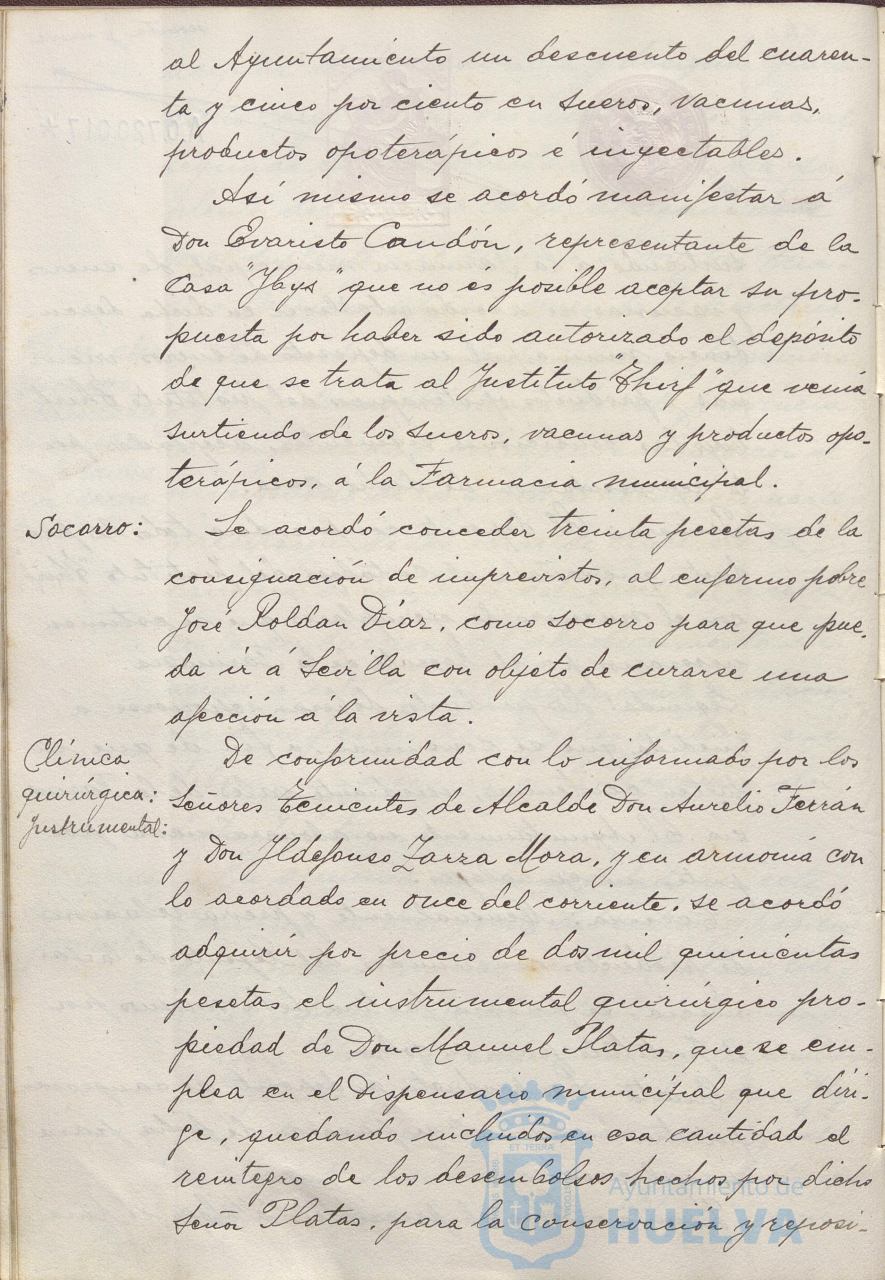 al Ayuntamiento un descuento del cuaren-
ta y cinco por ciento en sueros, vacunas,
productos opoterápicos é inyectables.
Así mismo se acordó manifestar á
Don Evaristo Candón, representante de la
Casa "Ibys" que no és posible aceptar su pro-
puesta por haber sido autorizado el depósito
de que se trata al Instituto "Thirf" que venia
surtiendo de los sueros, vacunas y productos opo-
terápicos, á la Farmacia municipal.
Socorro:
Se acordó conceder treinta pesetas de la
consignación de imprevistos, al enfermo pobre
José Roldan Díaz, como socorro para que pue-
da ir á Sevilla con objeto de curarse una
afección á la vista.
Clínica
quirúrgica:
Instrumental:
De conformidad con lo informado por los
Señores Tenientes de Alcalde Don Aurelio Ferrán
y Don Ildefonso Zarza Mora, y en armonía con
lo acordado en once del corriente, se acordó
adquirir por precio de dos mil quinientas
pesetas el instrumental quirúrgico pro-
piedad de Don Manuel Platas, que se em-
plea en el Dispensario municipal que diri-
ge, quedando incluidos en esa cantidad el
reintegro de los desembolsos hechos por dicho
Señor Platas, para la conservación y reposi-
Ayuntamiento de
HUELVA